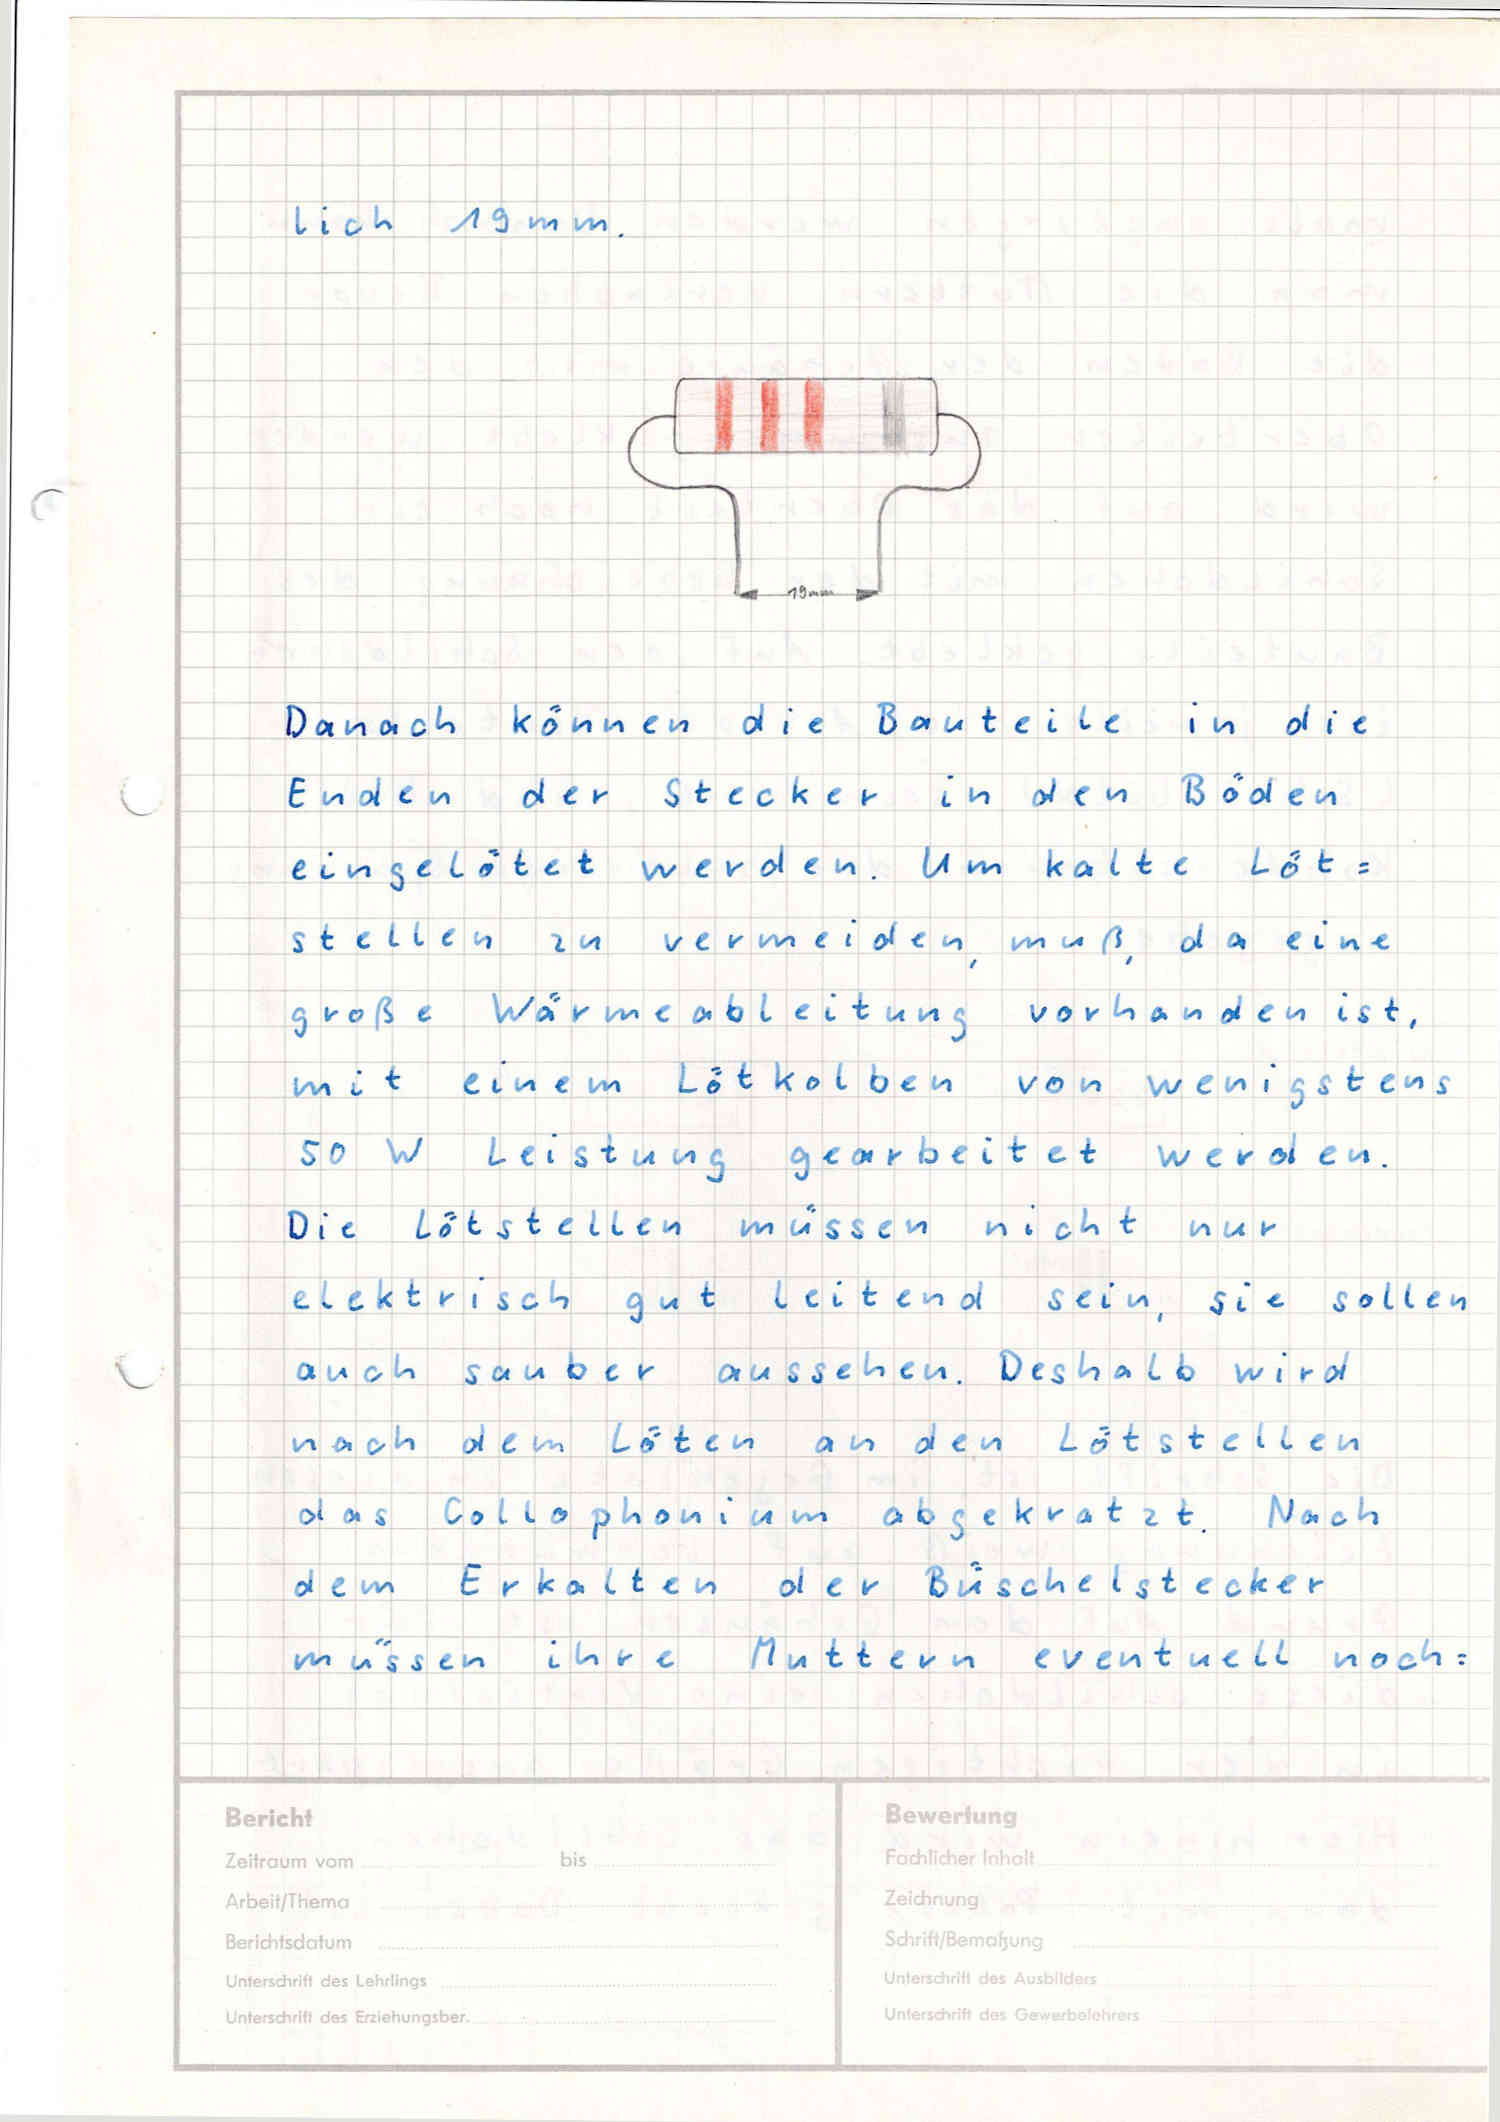 lich 19mm.
19mm
Danach können die Bauteile in die
Enden der Stecker in den Böden
eingelötet werden. Um kalte Löt=
stellen zu vermeiden, muß, da eine
große Wärmeableitung vorhanden ist,
mit einem Lötkolben von wenigstens
50 W Leistung gearbeitet werden.
Die Lötstellen müssen nicht nur
elektrisch gut leitend sein, sie sollen
auch sauber aussehen. Deshalb wird
nach dem Löten an den Lötstellen
das Collophonium abgekratzt. Nach
dem Erkalten der Büschelstecker
müssen ihre Muttern eventuell noch=
Bericht
Zeitraum vom bis
Arbeit/Thema
Berichtsdatum
Unterschrift des Lehrlings
Unterschrift des Erziehungsber.
Bewertung
Fachlicher Inhalt
Zeichnung
Schrift/Bemaßung
Unterschrift des Ausbilders
Unterschrift des Gewerbelehrers